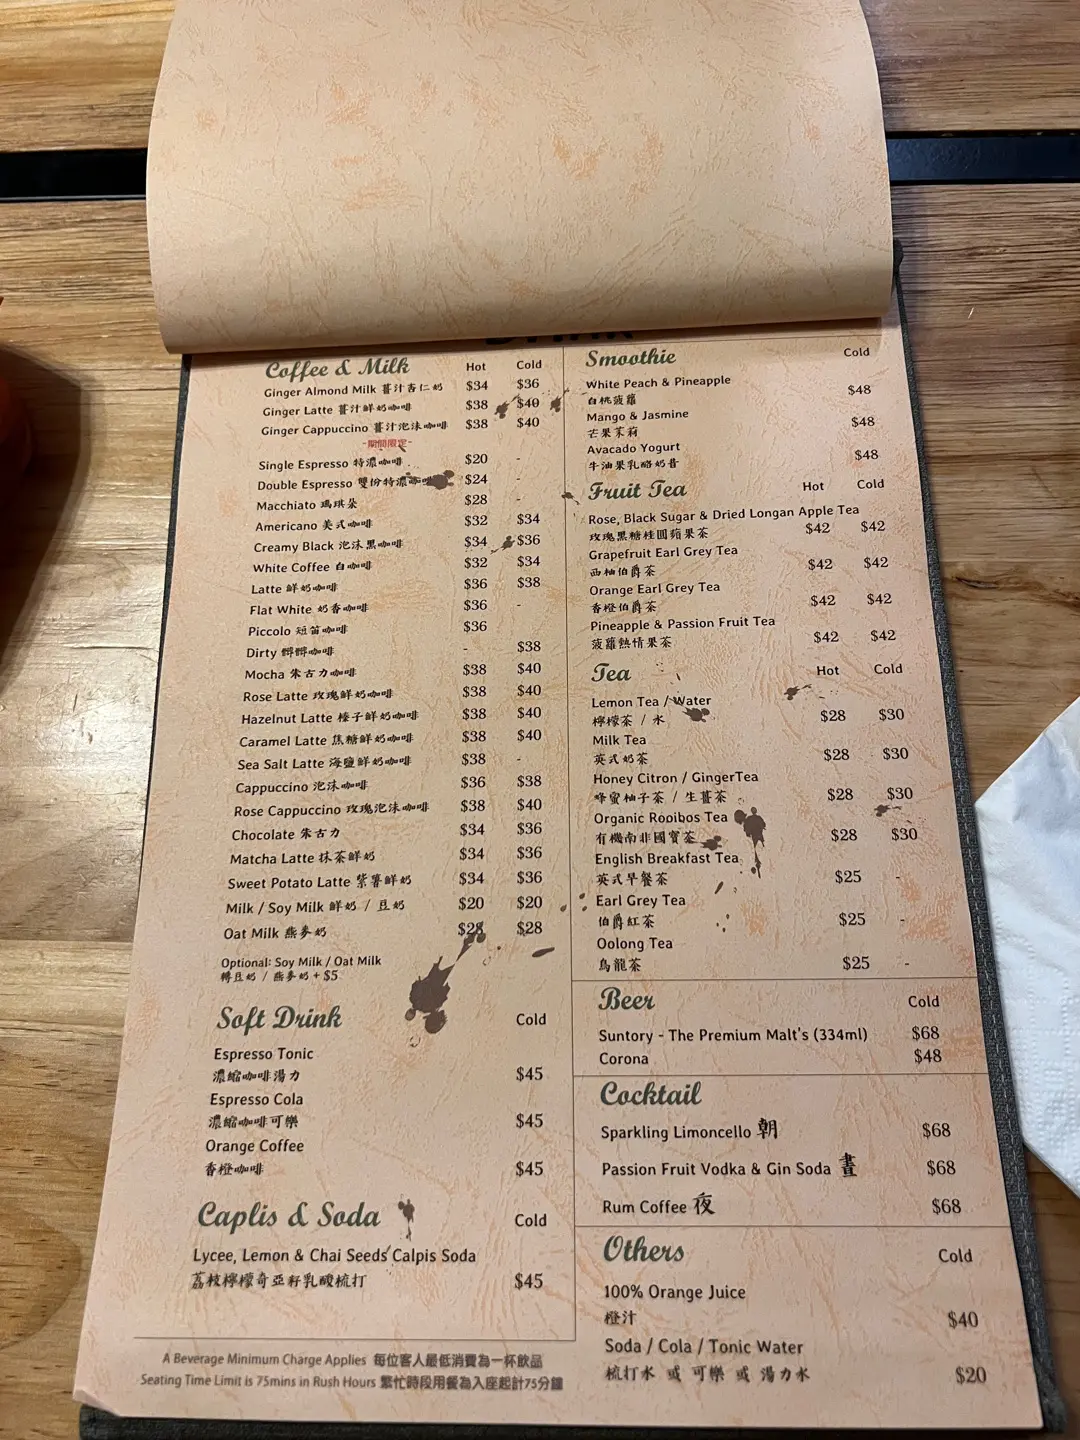 Coffee & Milk Hot Cold
Ginger Almond Milk 薑汁杏仁奶 $34 $36
Ginger Latte 薑汁鮮奶咖啡 $38 $40
Ginger Cappuccino 薑汁泡沫咖啡 $38 $40
-期間限定-
Single Espresso 特濃咖啡 $20 -
Double Espresso 雙份特濃咖啡 $24 -
Macchiato 瑪琪朵 $28 -
Americano 美式咖啡 $32 $34
Creamy Black 泡沫黑咖啡 $34 $36
White Coffee 白咖啡 $32 $34
Latte 鮮奶咖啡 $36 $38
Flat White 奶香咖啡 $36 -
Piccolo 短笛咖啡 $36
Dirty 髒髒咖啡 - $38
Mocha 朱古力咖啡 $38 $40
Rose Latte 玫瑰鮮奶咖啡 $38 $40
Hazelnut Latte 榛子鮮奶咖啡 $38 $40
Caramel Latte 焦糖鮮奶咖啡 $38 $40
Sea Salt Latte 海鹽鮮奶咖啡 $38 -
Cappuccino 泡沫咖啡 $36 $38
Rose Cappuccino 玫瑰泡沫咖啡 $38 $40
Chocolate 朱古力 $34 $36
Matcha Latte 抹茶鮮奶 $34 $36
Sweet Potato Latte 紫薯鮮奶 $34 $36
Milk / Soy Milk 鮮奶 / 豆奶 $20 $20
Oat Milk 燕麥奶 $28 $28
Optional: Soy Milk / Oat Milk
轉豆奶 / 燕麥奶 + $5
Soft Drink Cold
Espresso Tonic
濃縮咖啡湯力 $45
Espresso Cola
濃縮咖啡可樂 $45
Orange Coffee
香橙咖啡 $45
Caplis & Soda Cold
Lycee, Lemon & Chai Seeds Calpis Soda
荔枝檸檬奇亞籽乳酸梳打 $45
A Beverage Minimum Charge Applies 每位客人最低消費為一杯飲品
Seating Time Limit is 75mins in Rush Hours 繁忙時段用餐為入座起計75分鐘
Smoothie Cold
White Peach & Pineapple
白桃菠蘿 $48
Mango & Jasmine
芒果茉莉 $48
Avacado Yogurt
牛油果乳酪奶昔 $48
Fruit Tea Hot Cold
Rose, Black Sugar & Dried Longan Apple Tea
玫瑰黑糖桂圓蘋果茶 $42 $42
Grapefruit Earl Grey Tea
西柚伯爵茶 $42 $42
Orange Earl Grey Tea
香橙伯爵茶 $42 $42
Pineapple & Passion Fruit Tea
菠蘿熱情果茶 $42 $42
Tea Hot Cold
Lemon Tea / Water
檸檬茶 / 水 $28 $30
Milk Tea
英式奶茶 $28 $30
Honey Citron / GingerTea
蜂蜜柚子茶 / 生薑茶 $28 $30
Organic Rooibos Tea
有機南非國寶茶 $28 $30
English Breakfast Tea
英式早餐茶 $25 -
Earl Grey Tea
伯爵紅茶 $25 -
Oolong Tea
烏龍茶 $25 -
Beer Cold
Suntory - The Premium Malt's (334ml) $68
Corona $48
Cocktail
Sparkling Limoncello 朝 $68
Passion Fruit Vodka & Gin Soda 晝 $68
Rum Coffee 夜 $68
Others Cold
100% Orange Juice
橙汁 $40
Soda / Cola / Tonic Water
梳打水 或 可樂 或 湯力水 $20